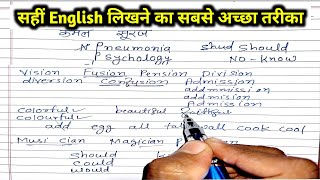 सहीं English लिखने का सबसे अच्छा तरीका
कमल सूरज
Pneumonia Shud Should
Psychology NO - Know
Vision Fusion Pension Division
diversion Confusion Admission
addmission
admision
Admission
colorful beautiful
colourful
add egg all fall wall cook cool
Musi cian Magician
Should
Could
would